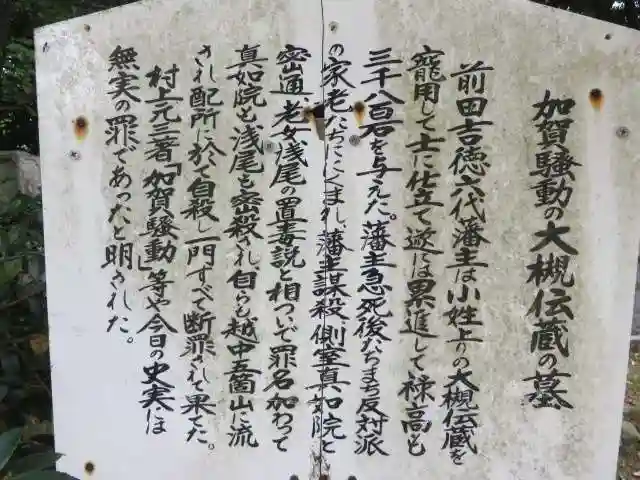 加賀騒動の大槻伝蔵の墓
前田吉徳六代藩主は小姓上りの大槻伝蔵を
寵用して士に仕立て遂には累進して禄高も
三千八百石を与えた。藩主急死後たちまち反対派
の家老たちににくまれ、藩主謀殺、側室真如院と
密通、老女浅尾の置毒説と相ついで罪名加わって
真如院も浅尾も密殺され、自らも越中五箇山に流
され配所に於て自殺し一門すべて断罪されて果てた。
村上元三著「加賀騒動」等や今日の史実は
無実の罪であったと明された。